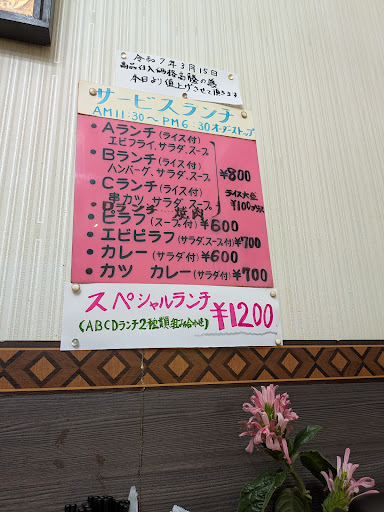 令和7年3月15日
商品仕入価格高騰の為
本日より値上げさせて頂きます
サービスランチ
AM11:30〜PM6:30オーダーストップ
・Aランチ(ライス付)
エビフライ、サラダ、スープ
・Bランチ(ライス付)
ハンバーグ、サラダ、スープ
¥800
・Cランチ(ライス付)
串カツ、サラダ、スープ
ライス大盛
¥100プラス
Dランチ 焼肉
・ピラフ(スープ付)¥600
・エビピラフ(サラダ、スープ付)¥700
・カレー(サラダ付)¥600
・カツ カレー(サラダ付)¥700
スペシャルランチ
¥1200
(ABCDランチ2種類組み合わせ)